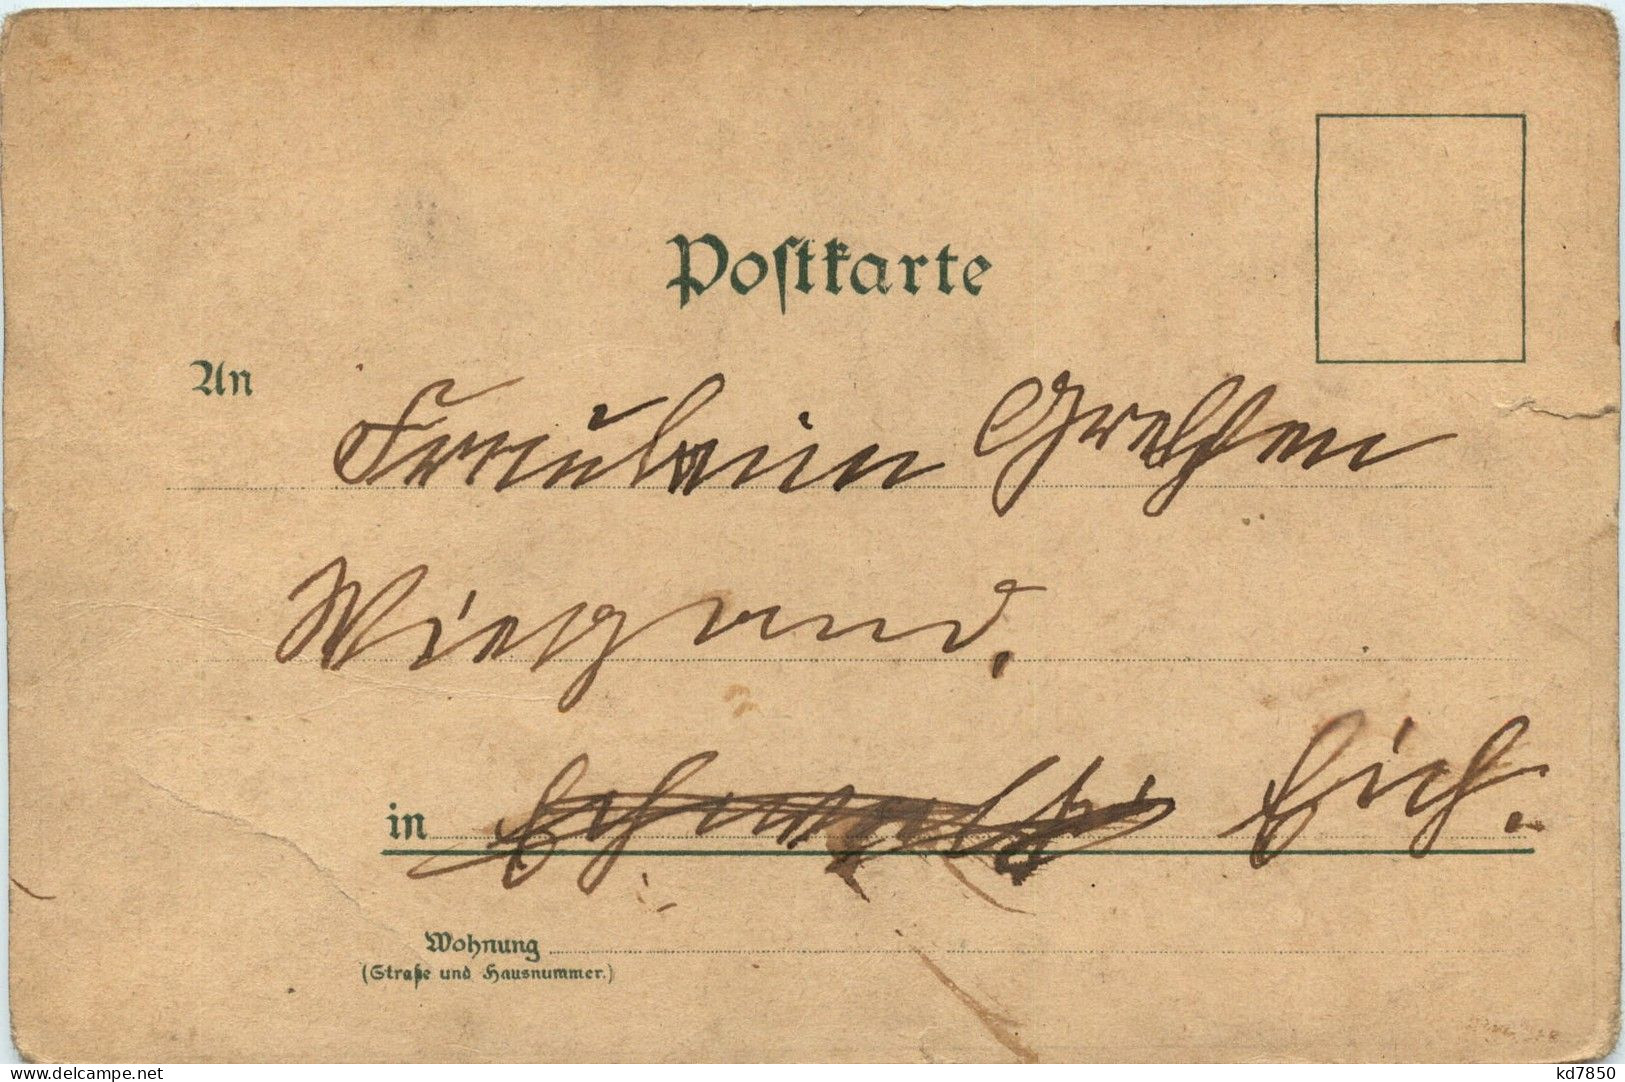 Postkarte
An Fräulein Grethen
Wiegand.
in Eich.
Wohnung
(Straße und Hausnummer.)
www.delcampe.net
kd7850